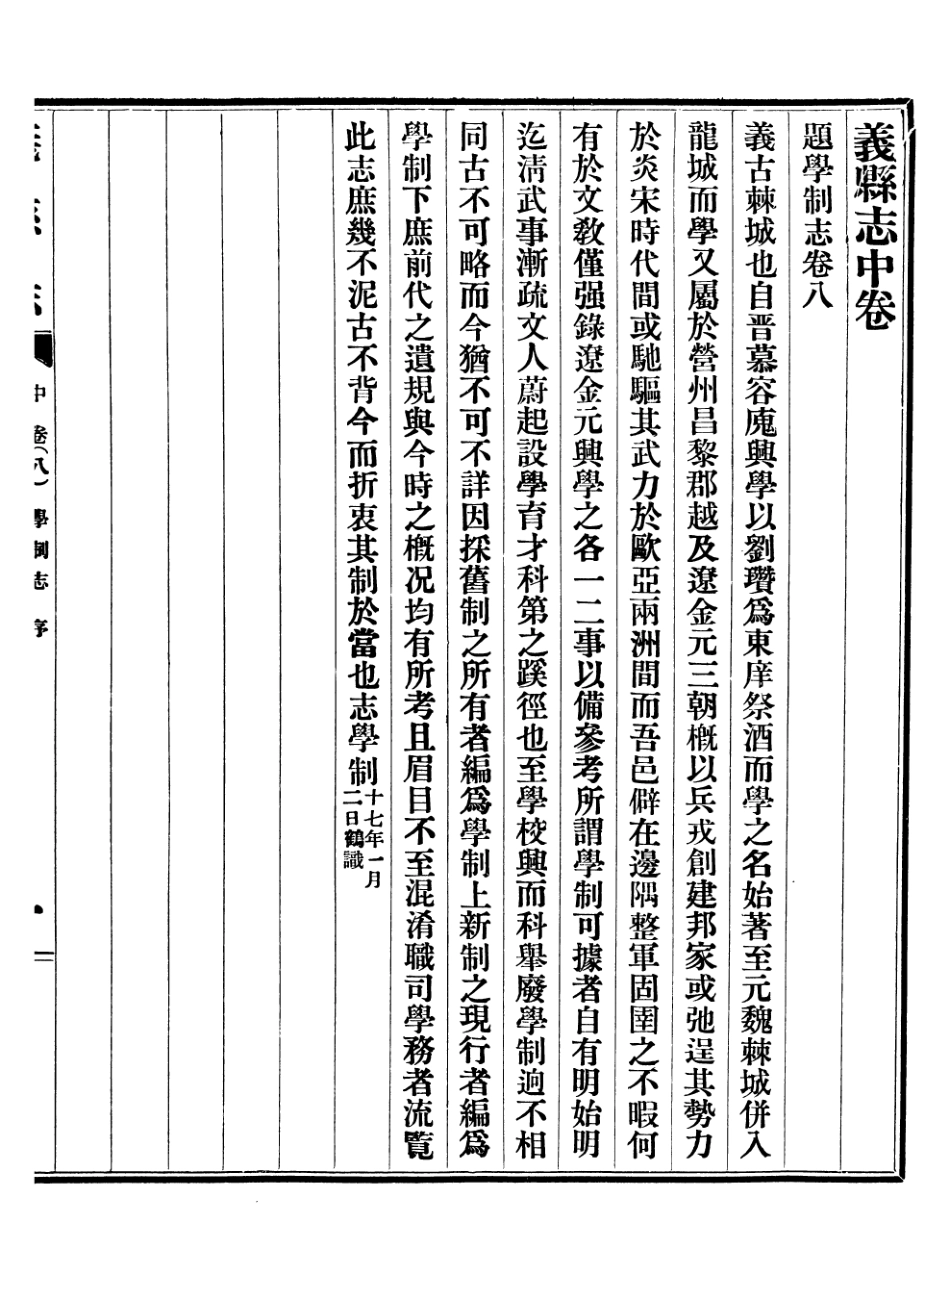 義縣志中卷
題學制志卷八
義古棘城也自晋慕容廆興學以劉瓚爲東庠祭酒而學之名始著至元魏棘城併入
龍城而學又屬於營州昌黎郡越及遼金元三朝槪以兵戎創建邦家或弛逞其勢力
於炎宋時代間或馳驅其武力於歐亞兩洲間而吾邑僻在邊隅整軍固圉之不暇何
有於文敎僅强錄遼金元興學之各一二事以備參考所謂學制可據者自有明始明
迄淸武事漸疏文人蔚起設學育才科第之蹊徑也至學校興而科舉廢學制逈不相
同古不可略而今猶不可不詳因採舊制之所有者編爲學制上新制之現行者編爲
學制下庶前代之遺規與今時之槪况均有所考且眉目不至混淆職司學務者流覧
此志庶幾不泥古不背今而折衷其制於當也志學制十七年一月
二日鶴識
中卷(八)學制志 序